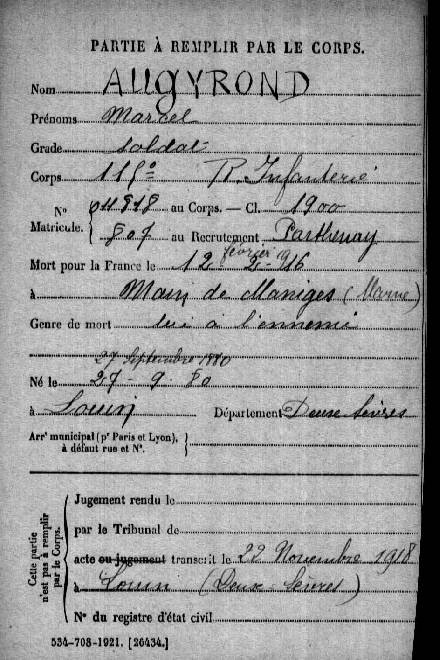 PARTIE À REMPLIR PAR LE CORPS.
Nom AUGYROND
Prénoms Marcel
Grade soldat
Corps R. Infanterie
N° 04818 au Corps. — Cl. 1900
Matricule. 807 au Recrutement Parthenay
février
Mort pour la France le 12 - 2 - 916
à Main de Massiges (Marne)
Genre de mort tué à l'ennemi
27 Septembre 1880
Né le 27 - 9 - 80
à Louin Département Deux Sèvres
Arrᵗ municipal (pʳ Paris et Lyon),
à défaut rue et N°.
Cette partie n'est pas à remplir par le Corps.
Jugement rendu le
par le Tribunal de
acte ou jugement transcrit le 22 Novembre 1918
à Louin (Deux-Sèvres)
N° du registre d'état civil
534-708-1921. [26434.]